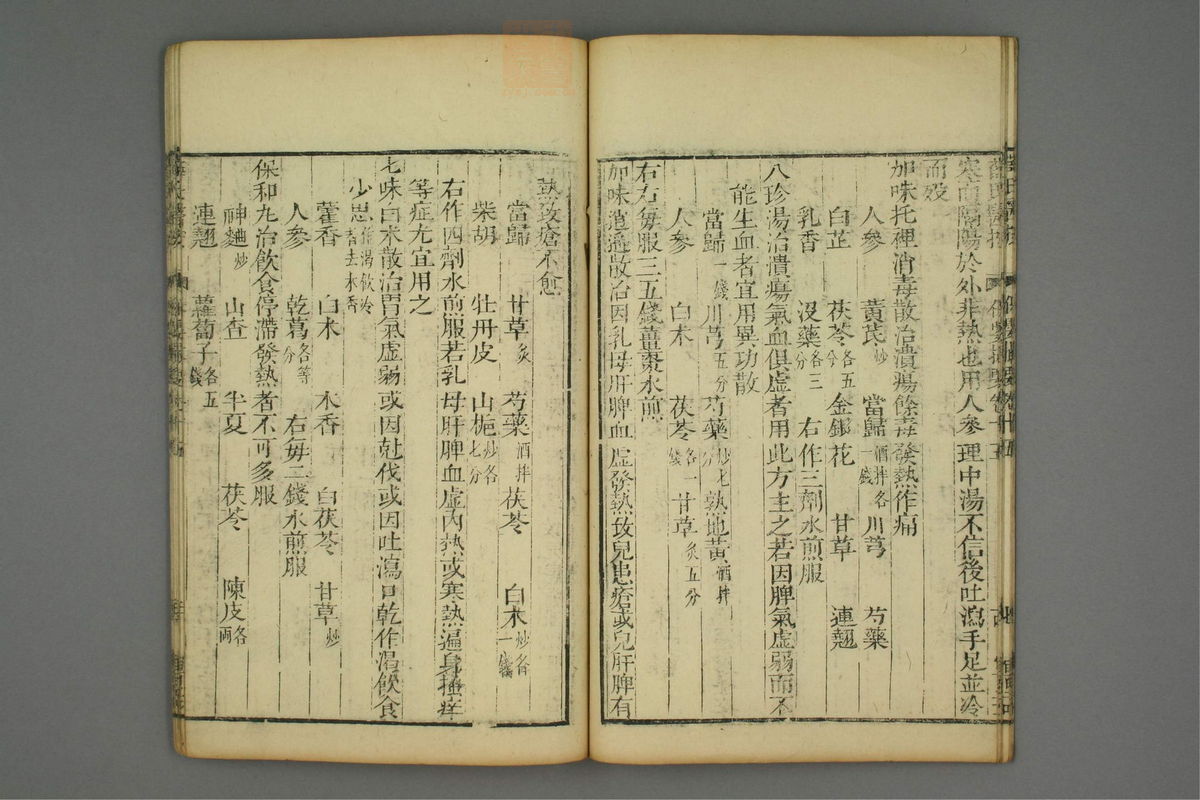 寒而隔陽於外非熱也用人參理中湯不信後吐瀉手足並冷
而歿
加味托裡消毒散治潰瘍餘毒發熱作痛
人參 黃芪炒 當歸酒拌各一錢 川芎 芍藥
白芷 茯苓各五分 金銀花 甘草 連翹
乳香 沒藥各三分 右作三劑水煎服
八珍湯治潰瘍氣血俱虛者用此方主之若因脾氣虛弱而不
能生血者宜用異功散
當歸一錢 川芎五分 芍藥炒七分 熟地黃酒拌
人參 白朮 茯苓各一錢 甘草炙五分
右右每服三五錢薑棗水煎
加味逍遙散治因乳母肝脾血虛發熱致兒患瘡或兒肝脾有
熱致瘡不愈
當歸 甘草炙 芍藥酒拌 茯苓 白朮炒各一錢
柴胡 牡丹皮 山梔炒各七分
右作四劑水煎服若乳母肝脾血虛內熱或寒熱遍身搔痒
等症尤宜用之
七味白朮散治胃氣虛弱或因尅伐或因吐瀉口乾作渴飲食
少思若作渴飲冷去木香
藿香 白朮 木香 白茯苓 甘草炒
人參 乾葛各等分 右每二錢水煎服
保和丸治飲食停滯發熱者不可多服
神麯炒 山查 半夏 茯苓 陳皮各一兩
連翹 蘿蔔子各五錢